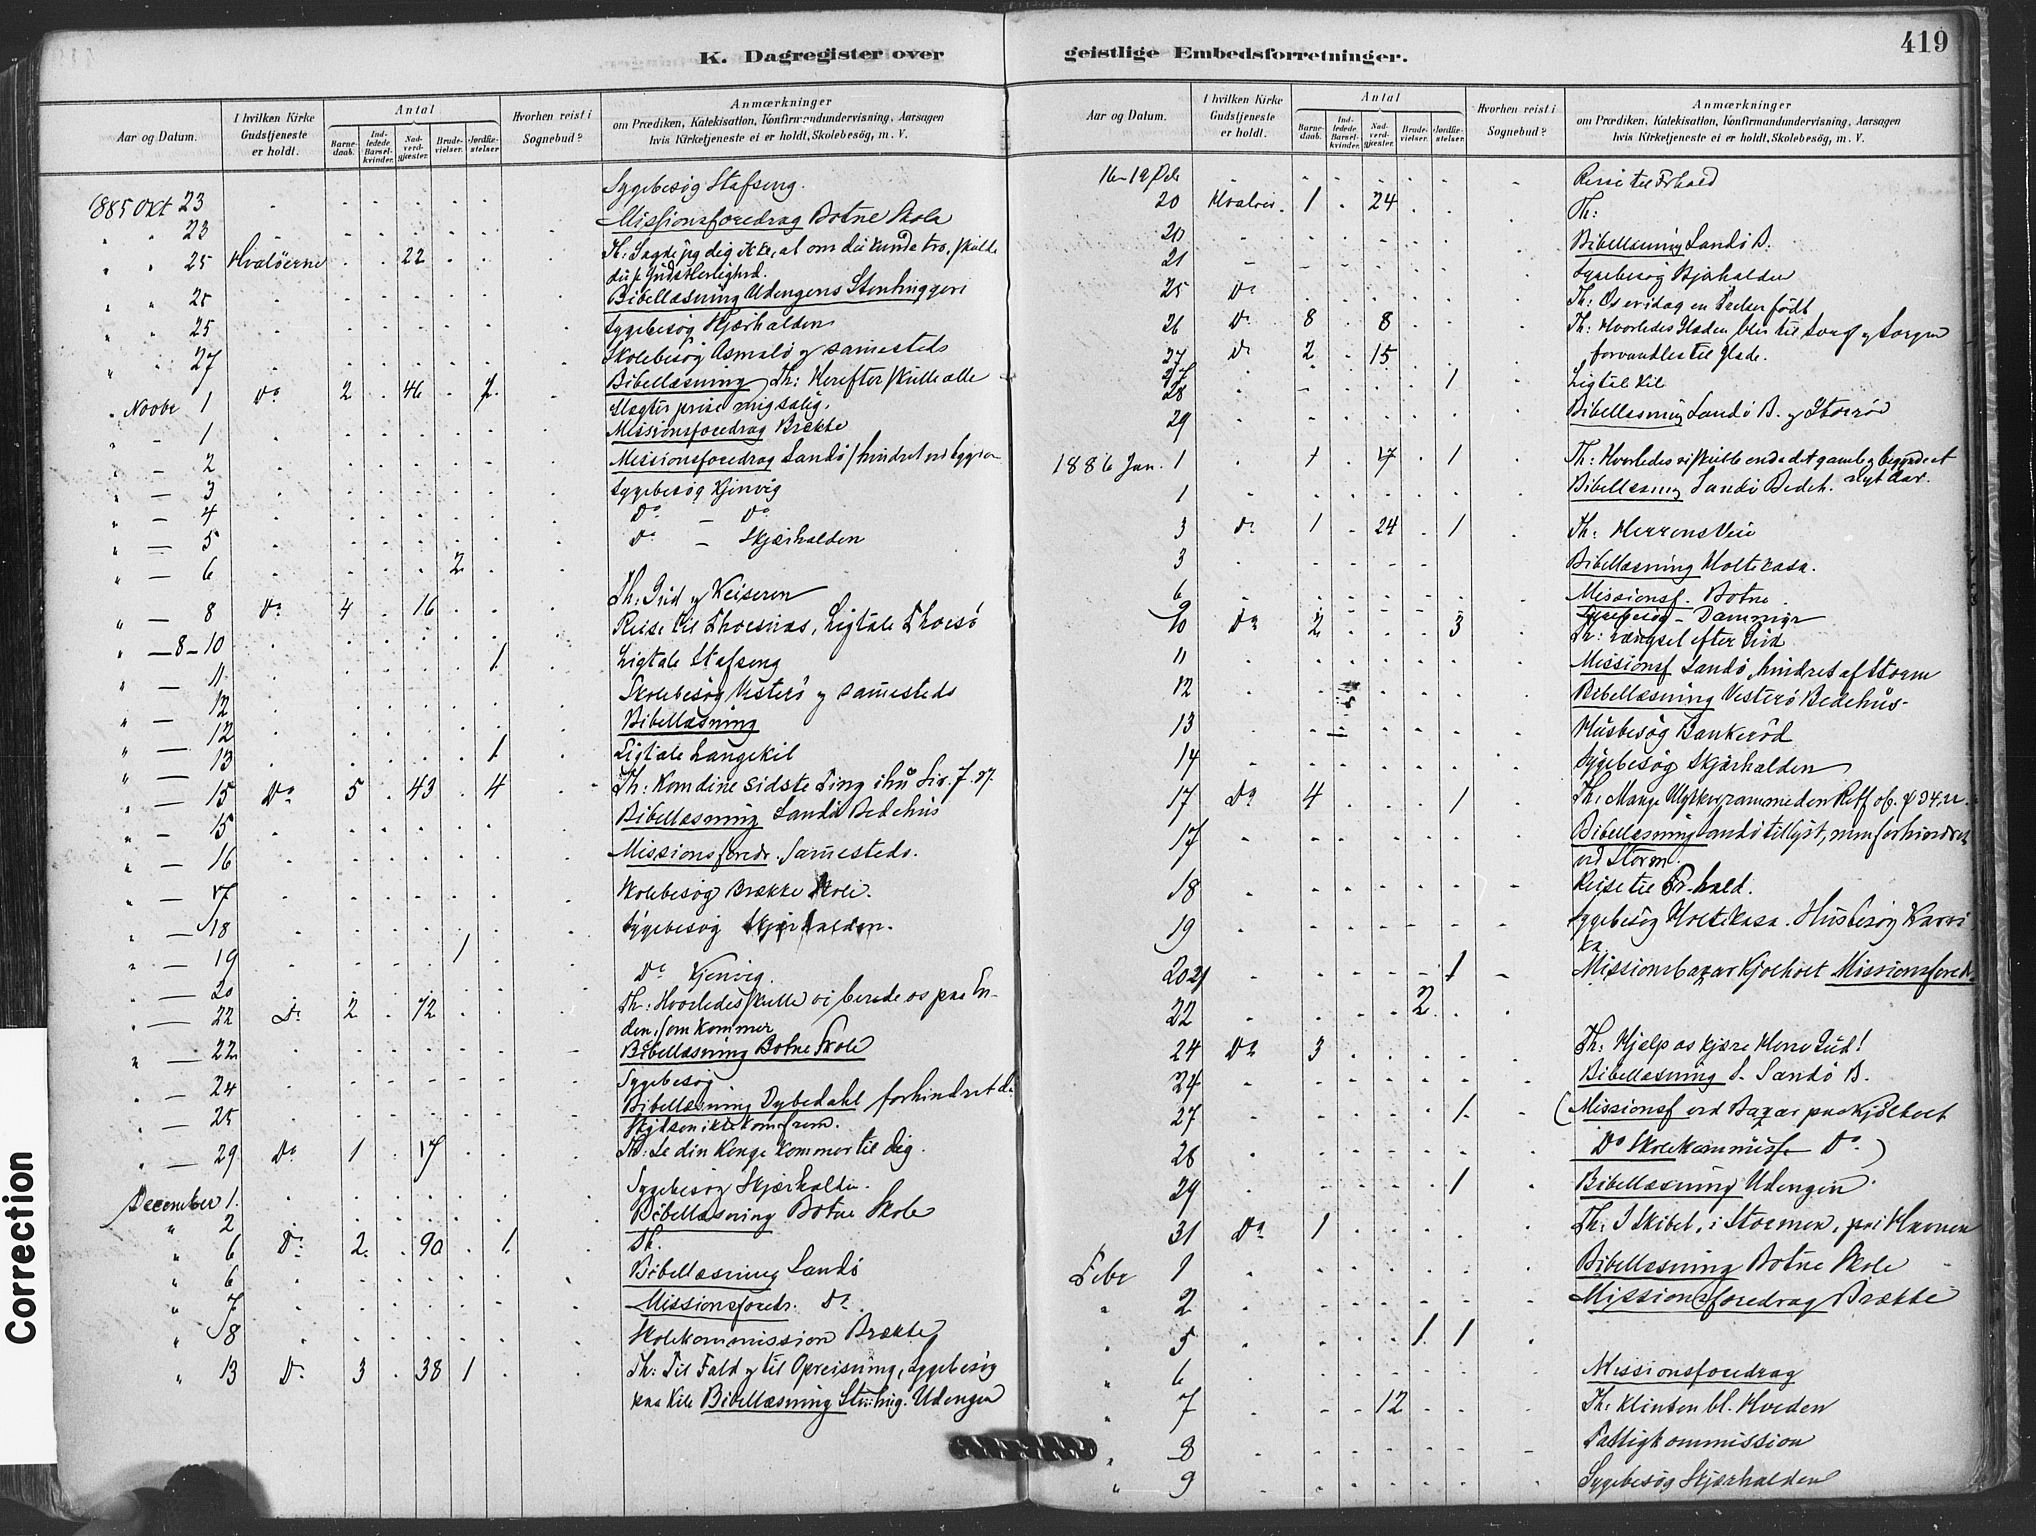 K. Dagregister over
Aar og Datum.
I hvilken Kirke Gudstjeneste er holdt.
Antal
Barne-daab.
Ind-ledede Barsel-kvinder.
Nad-verd-gjæster.
Brude-vielser.
Jordfæ-stelser
Hvorhen reist i Sognebud?
Anmærkninger
om Prædiken, Katekisation, Konfirmandundervisning, Aarsagen
hvis Kirketjeneste ei er holdt, Skolebesøg, m. V.
1885 Okt 23 Sygebesøg Stafseng.
" " 23 Missionsforedrag Botne Skole
" " 25 Hvaløerne 22 Th: Sagde jeg dig ikke, at om du kunde tro, skulde
du se Guds Herlighed.
" " 25 Bibellæsning Udengens Stenhuggeri
" " 25 Sygebesøg Skjærhalden
" " 27 Skolebesøg Asmalø og samesteds
Bibellæsning
" Novbr 1 Do 2 46 2 Th: Herefter skulle alle
Slægter prise mig salig.
" - 1 Missionsforedrag Brække
" - 2 Missionsforedrag Sandø
" - 3 Sygebesøg Kjenvig
" - 4 Do - Do
" - 5 Do - Skjærhalden
" - 6 2
" - 8 Do 4 16 Th: Gud og Keiseren
" - 8-10 Reise til
" - 11 1 Ligtale Stafseng
" - 12 Skolebesøg Vesterø og samesteds
" - 12 Bibellæsning
" - 13 1 Ligtale Langekil
" - 15 Do 5 43 4 Th: Kom dine sidste Ting ihu
" - 15 Bibellæsning Sandø Bedehus
" - 16 Missionsforedr. Samesteds.
" - 17 Skolebesøg Brække Skole.
" - 18 Sygebesøg Skjærhalden.
" - 19 1
" - 20 Do Kjenvig
" - 22 Do 2 72 Th: Hvorledes skulle vi berede os paa
den, som kommer
" - 22 Bibellæsning Botne Skole
" - 24 Sygebesøg
" - 25 Bibellæsning Dybedahl forhindret da
Skydsen ikke kom frem.
" - 29 Do 1 17 Th: Se din Konge kommer til dig.
December 1. Sygebesøg Skjærhalden.
" 2 Bibellæsning Botne Skole
" 6 Do 2 90 1 Th.
" 6 Bibellæsning Sandø
" 7 Missionsforedr. Do.
" 8 Skolekommission Brække
" 13 Do 3 38 1 Th: Til Fald og til Opreisning. Sygebesøg
paa Kile Bibellæsning Stenhug. Udengen
geistlige Embedsforretninger.
419
Aar og Datum.
I hvilken Kirke Gudstjeneste er holdt.
Antal
Barne-daab.
Ind-ledede Barsel-kvinder.
Nad-verd-gjæster.
Brude-vielser.
Jordfæ-stelser.
Hvorhen reist i Sognebud?
Anmærkninger
om Prædiken, Katekisation, Konfirmandundervisning, Aarsagen
hvis Kirketjeneste ei er holdt, Skolebesøg, m. V.
16-19 Reise til Frhald
20 1 24 Th:
20 Bibellæsning Sandø B.
21 Sygebesøg Skjærhalden
25 Do Th: Os er idag en Frelser født
26 Do 8 8 Th: Hvorledes Glæden blev til Sorg og Sorgen
forvandles til Glæde.
27 Do 2 15
27 1 Ligtale Kil
28 Bibellæsning Sandø B. og
29
1886 Jan. 1 1 17 1 Th: Hvorledes vi skulle ende det gamle og begynde et
nyt Aar.
1 Bibellæsning Sandø Bedeh.
3 Do 1 24 1 Th: Herrens Veie
3 Bibellæsning Holtekasa.
6 Missionsf. Botne
9 Sygebesøg - Dammyr
10 Do 2 3 Th: Længsel efter Gud
11 Missionsf Sandø, hindret af Storm
12 Bibellæsning Vesterø Bedehus-
13 Husbesøg Bankerød
14 Sygebesøg Skjærhalden
17 Do 4 1 Th: Mange Ulykker rammer den
17 Bibellæsning Sandø tillyst, men forhindret
ved Storm.
18 Reise til Fr-hald.
19 Sygebesøg Holtekasa. Husbesøg
20-21 1 Missionsbazar Kjølholt Missionsforedr.
22 2
24 Do 3 Th: Hjælp os kjære Herre Gud!
24 Bibellæsning S. Sandø B.
27 1 (Missionsf ved Bazar paa Kjølholt
28 Do Skolekommiss. Do)
29 1 Bibellæsning Udengen
31 Do 1 Th: I Skibet, i Stormen, paa Havnen
Febr 1 Bibellæsning Botne Skole
" 2 Missionsforedrag Brække
" 5 1 1
" 6 Missionsforedrag
" 7 12 Th: Klinten bl. Hveden
" 8 Fattigkommission
" 9 Sygebesøg Skjærhalden
Correction